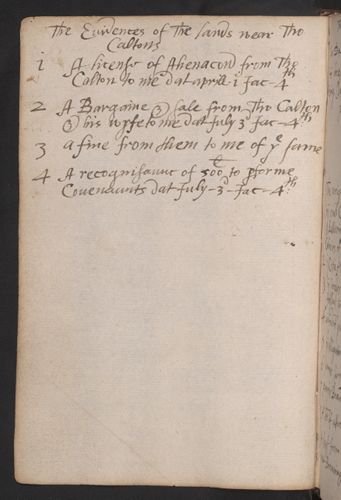 The Evidences of the lands near Tho
Caltons
1 A license of Alienacon from Tho
Calton to me dat aprill i Jac - 4th
2 A Bargaine & sale from Tho Calton
& his wyfe to me dat July 3 Jac - 4th
3 a fine from them to me of ye same
4 A recognisaunc of 500 to pforme
Covenaunts dat July - 3 - Jac - 4th